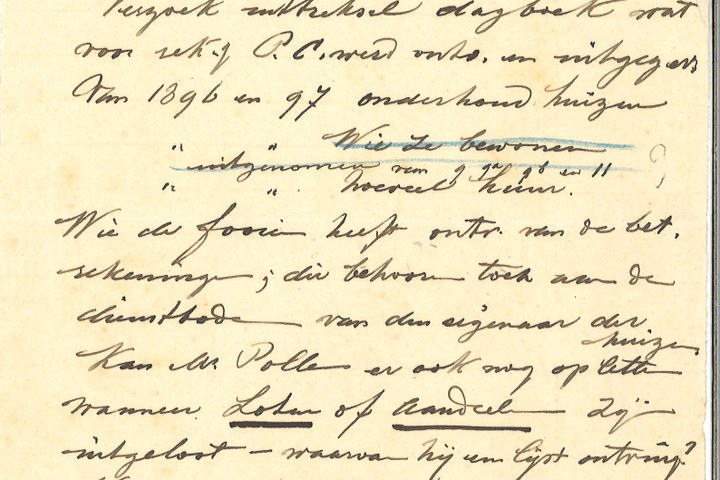 Verzoek uittreksel dagboek wat
voor rek.g P.C. werd ontv. en uitgegeven
Van 1896 en 97 onderhoud huizen
" " Wie ze bewonen
uitgenomen van 9 9a 9b en 11 ?
" " hoeveel huur.
Wie de fooien heeft ontv. van de bet.
rekeningen; die behooren toch aan de
dienstbode van den eigenaar der
huizen
Kan Mr Polle er ook nog op letten
wanneer Loten of Aandeelen zijn
uitgeloot – waarvan hij een lijst ontving?